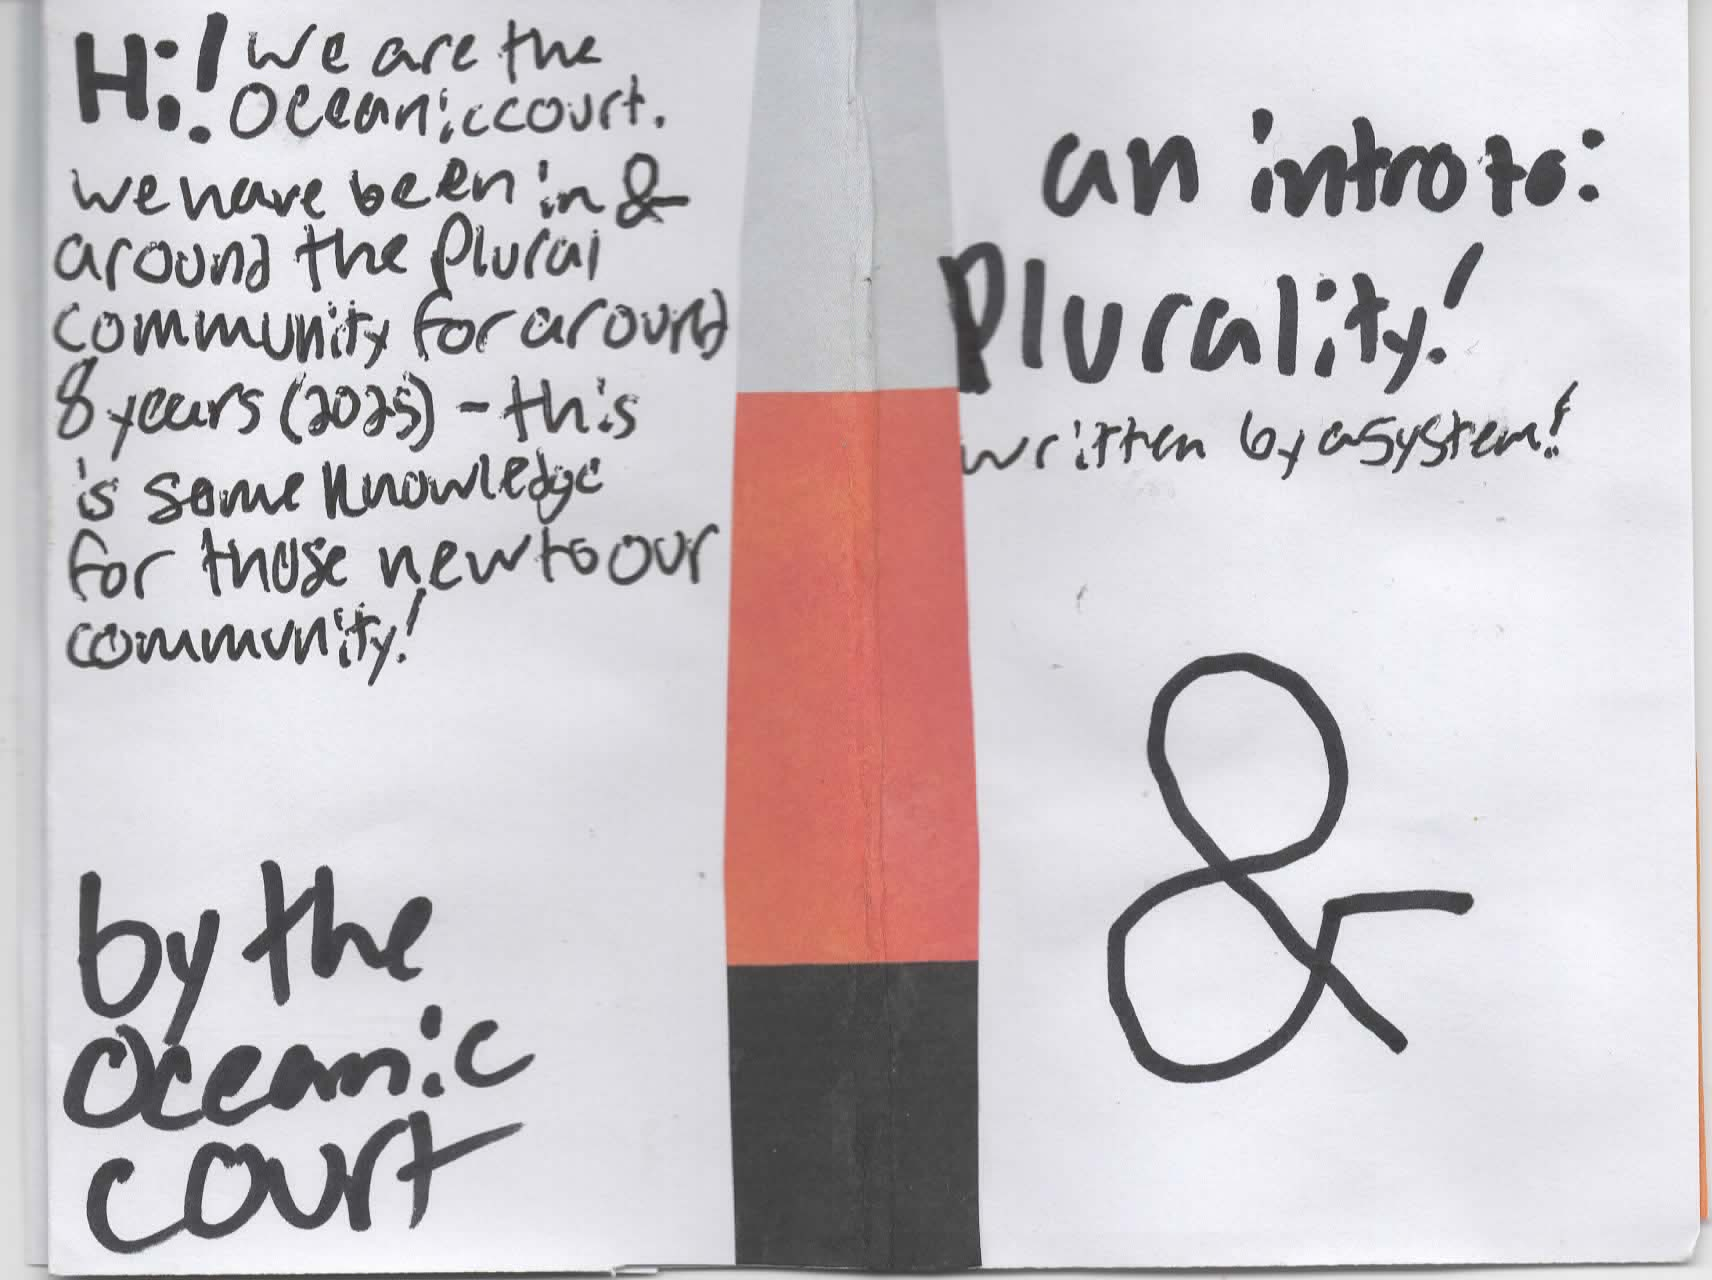 Hi! we are the
Oceaniccourt.
we have been in &
around the plural
community for around
8 years (2025) - this
is some knowledge
for those new to our
community!
by the
Oceanic
court
an intro to:
Plurality!
written by a system!
&